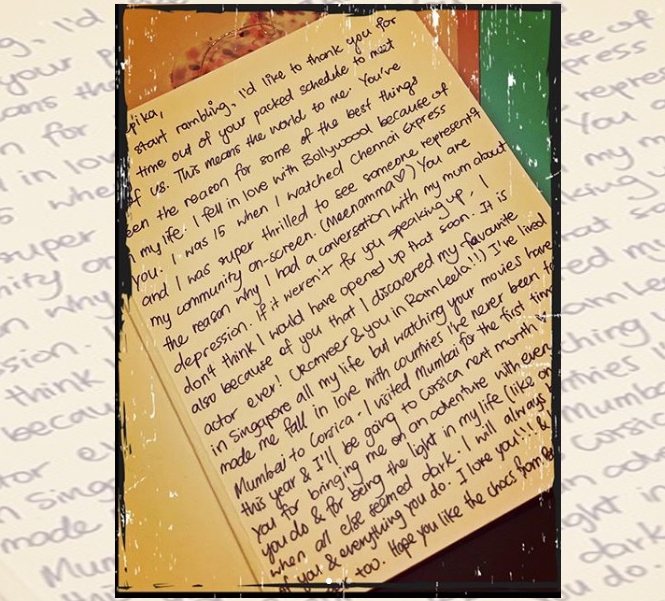 start rambling, I'd like to thank you for
time out of your packed schedule to meet
of us. This means the world to me. You've
een the reason for some of the best things
my life. I fell in love with Bollywood because of
you. I was 15 when I watched Chennai Express
and I was super thrilled to see someone representing
my community on-screen. (Meenamma♡) You are
the reason why I had a conversation with my mum about
depression. If it weren't for you speaking up, I
don't think I would have opened up that soon. It is
also because of you that I discovered my favourite
actor ever! (Ranveer & you in Ram Leela!!) I've lived
in Singapore all my life but watching your movies have
made me fall in love with countries I've never been to
Mumbai to Corsica. I visited Mumbai for the first time
this year & I'll be going to Corsica next month.
you for bringing me on an adventure with every
you do & for being the light in my life (like
when all else seemed dark. I will always
of you & everything you do. I love you!!! &
too. Hope you like the chocs from